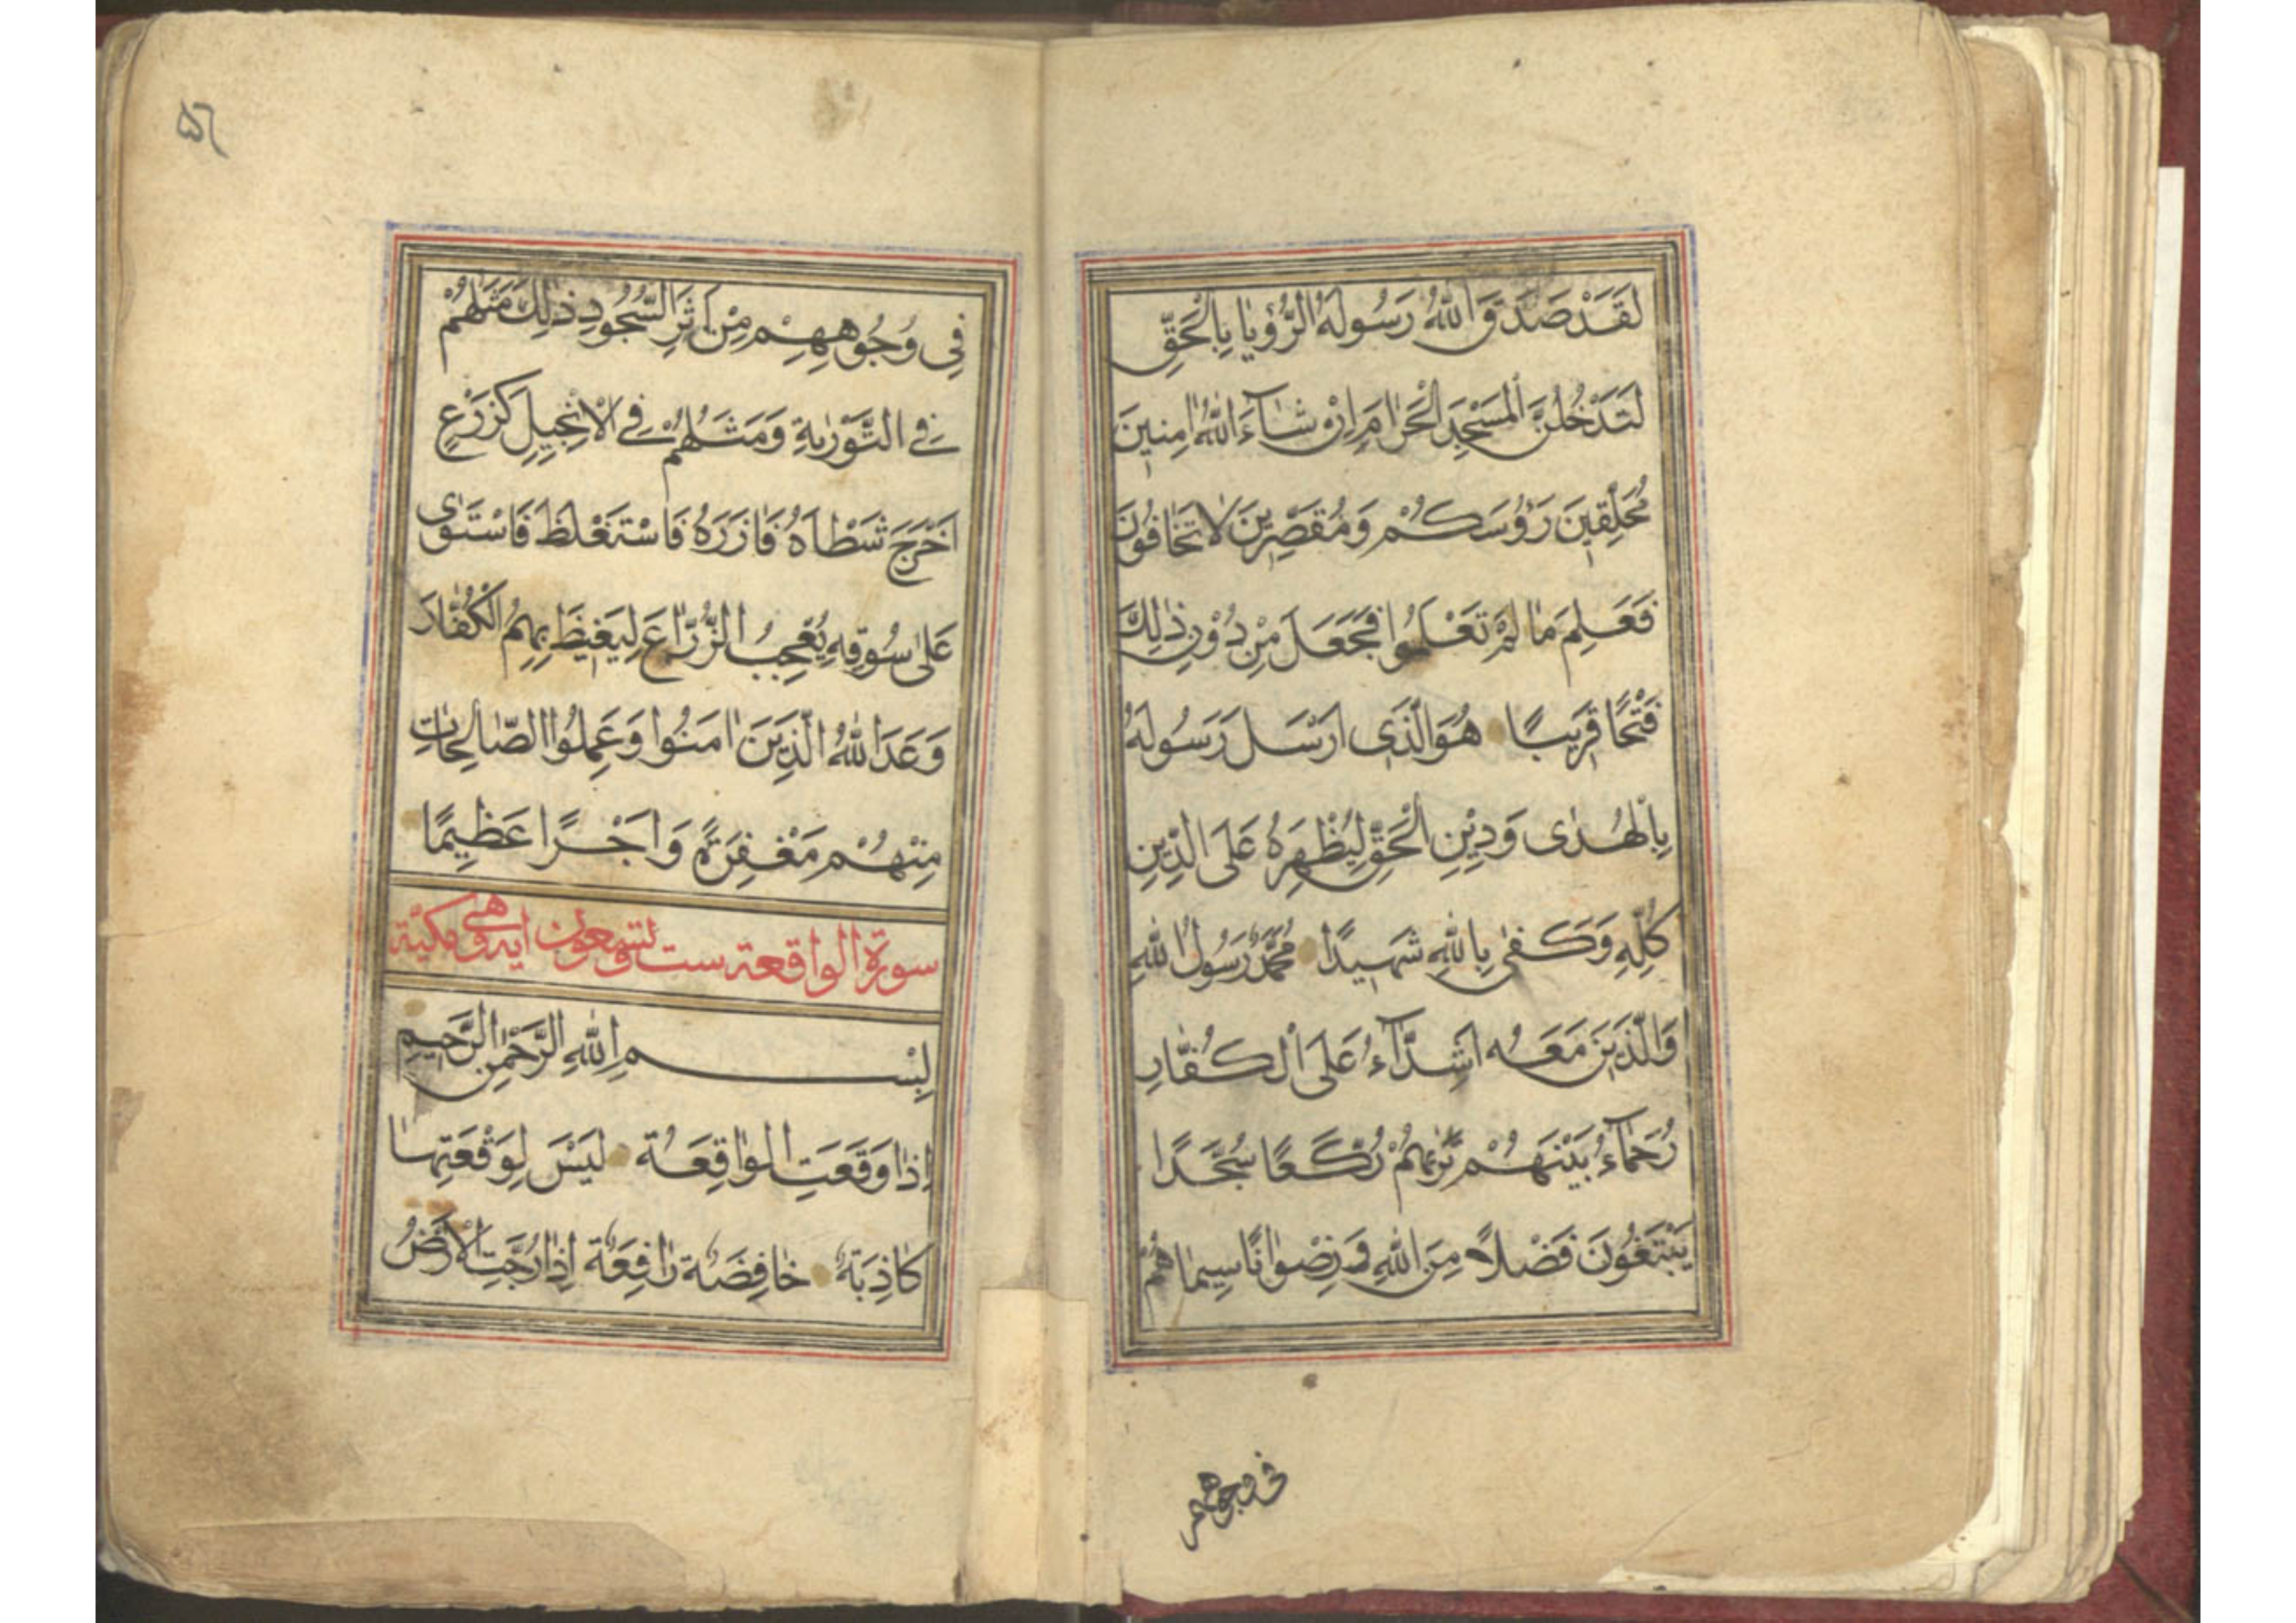 لَقَدْ صَدَقَ اللّٰهُ رَسُولَهُ الرُّؤْيَا بِالْحَقِّ
لَتَدْخُلُنَّ الْمَسْجِدَ الْحَرَامَ اِنْ شَآءَ اللّٰهُ اٰمِنِينَ
مُحَلِّقِينَ رَؤُسَكُمْ وَمُقَصِّرِينَ لَا تَخَافُونَ
فَعَلِمَ مَا لَمْ تَعْلَمُوا فَجَعَلَ مِنْ دُوْنِ ذٰلِكَ
فَتْحًا قَرِيبًا هُوَ الَّذِى اَرْسَلَ رَسُولَهُ
بِالْهُدٰى وَدِيْنِ الْحَقِّ لِيُظْهِرَهُ عَلَى الدِّيْنِ
كُلِّهِ وَكَفٰى بِاللّٰهِ شَهِيدًا مُحَمَّدٌ رَسُولُ اللّٰهِ
وَالَّذِينَ مَعَهُ اَشِدَّآءُ عَلَى الْكُفَّارِ
رُحَمَآءُ بَيْنَهُمْ تَرٰيهُمْ رُكَّعًا سُجَّدًا
يَبْتَغُونَ فَضْلًا مِنَ اللّٰهِ وَرِضْوَانًا سِيمَاهُمْ
فى وجوههم
۵٦
فِى وُجُوهِهِمْ مِنْ اَثَرِ السُّجُودِ ذٰلِكَ مَثَلُهُمْ
فِى التَّوْرٰيةِ وَمَثَلُهُمْ فِى الْاِنْجِيلِ كَزَرْعٍ
اَخْرَجَ شَطْاَهُ فَاٰزَرَهُ فَاسْتَغْلَظَ فَاسْتَوٰى
عَلٰى سُوقِهِ يُعْجِبُ الزُّرَّاعَ لِيَغِيظَ بِهِمُ الْكُفَّارَ
وَعَدَ اللّٰهُ الَّذِينَ اٰمَنُوا وَعَمِلُوا الصَّالِحَاتِ
مِنْهُمْ مَغْفِرَةً وَاَجْرًا عَظِيمًا
سورة الواقعة ست وتسعون اية وهى مكية
بِسْمِ اللّٰهِ الرَّحْمٰنِ الرَّحِيمِ
اِذَا وَقَعَتِ الْوَاقِعَةُ لَيْسَ لِوَقْعَتِهَا
كَاذِبَةٌ خَافِضَةٌ رَافِعَةٌ اِذَا رُجَّتِ الْاَرْضُ